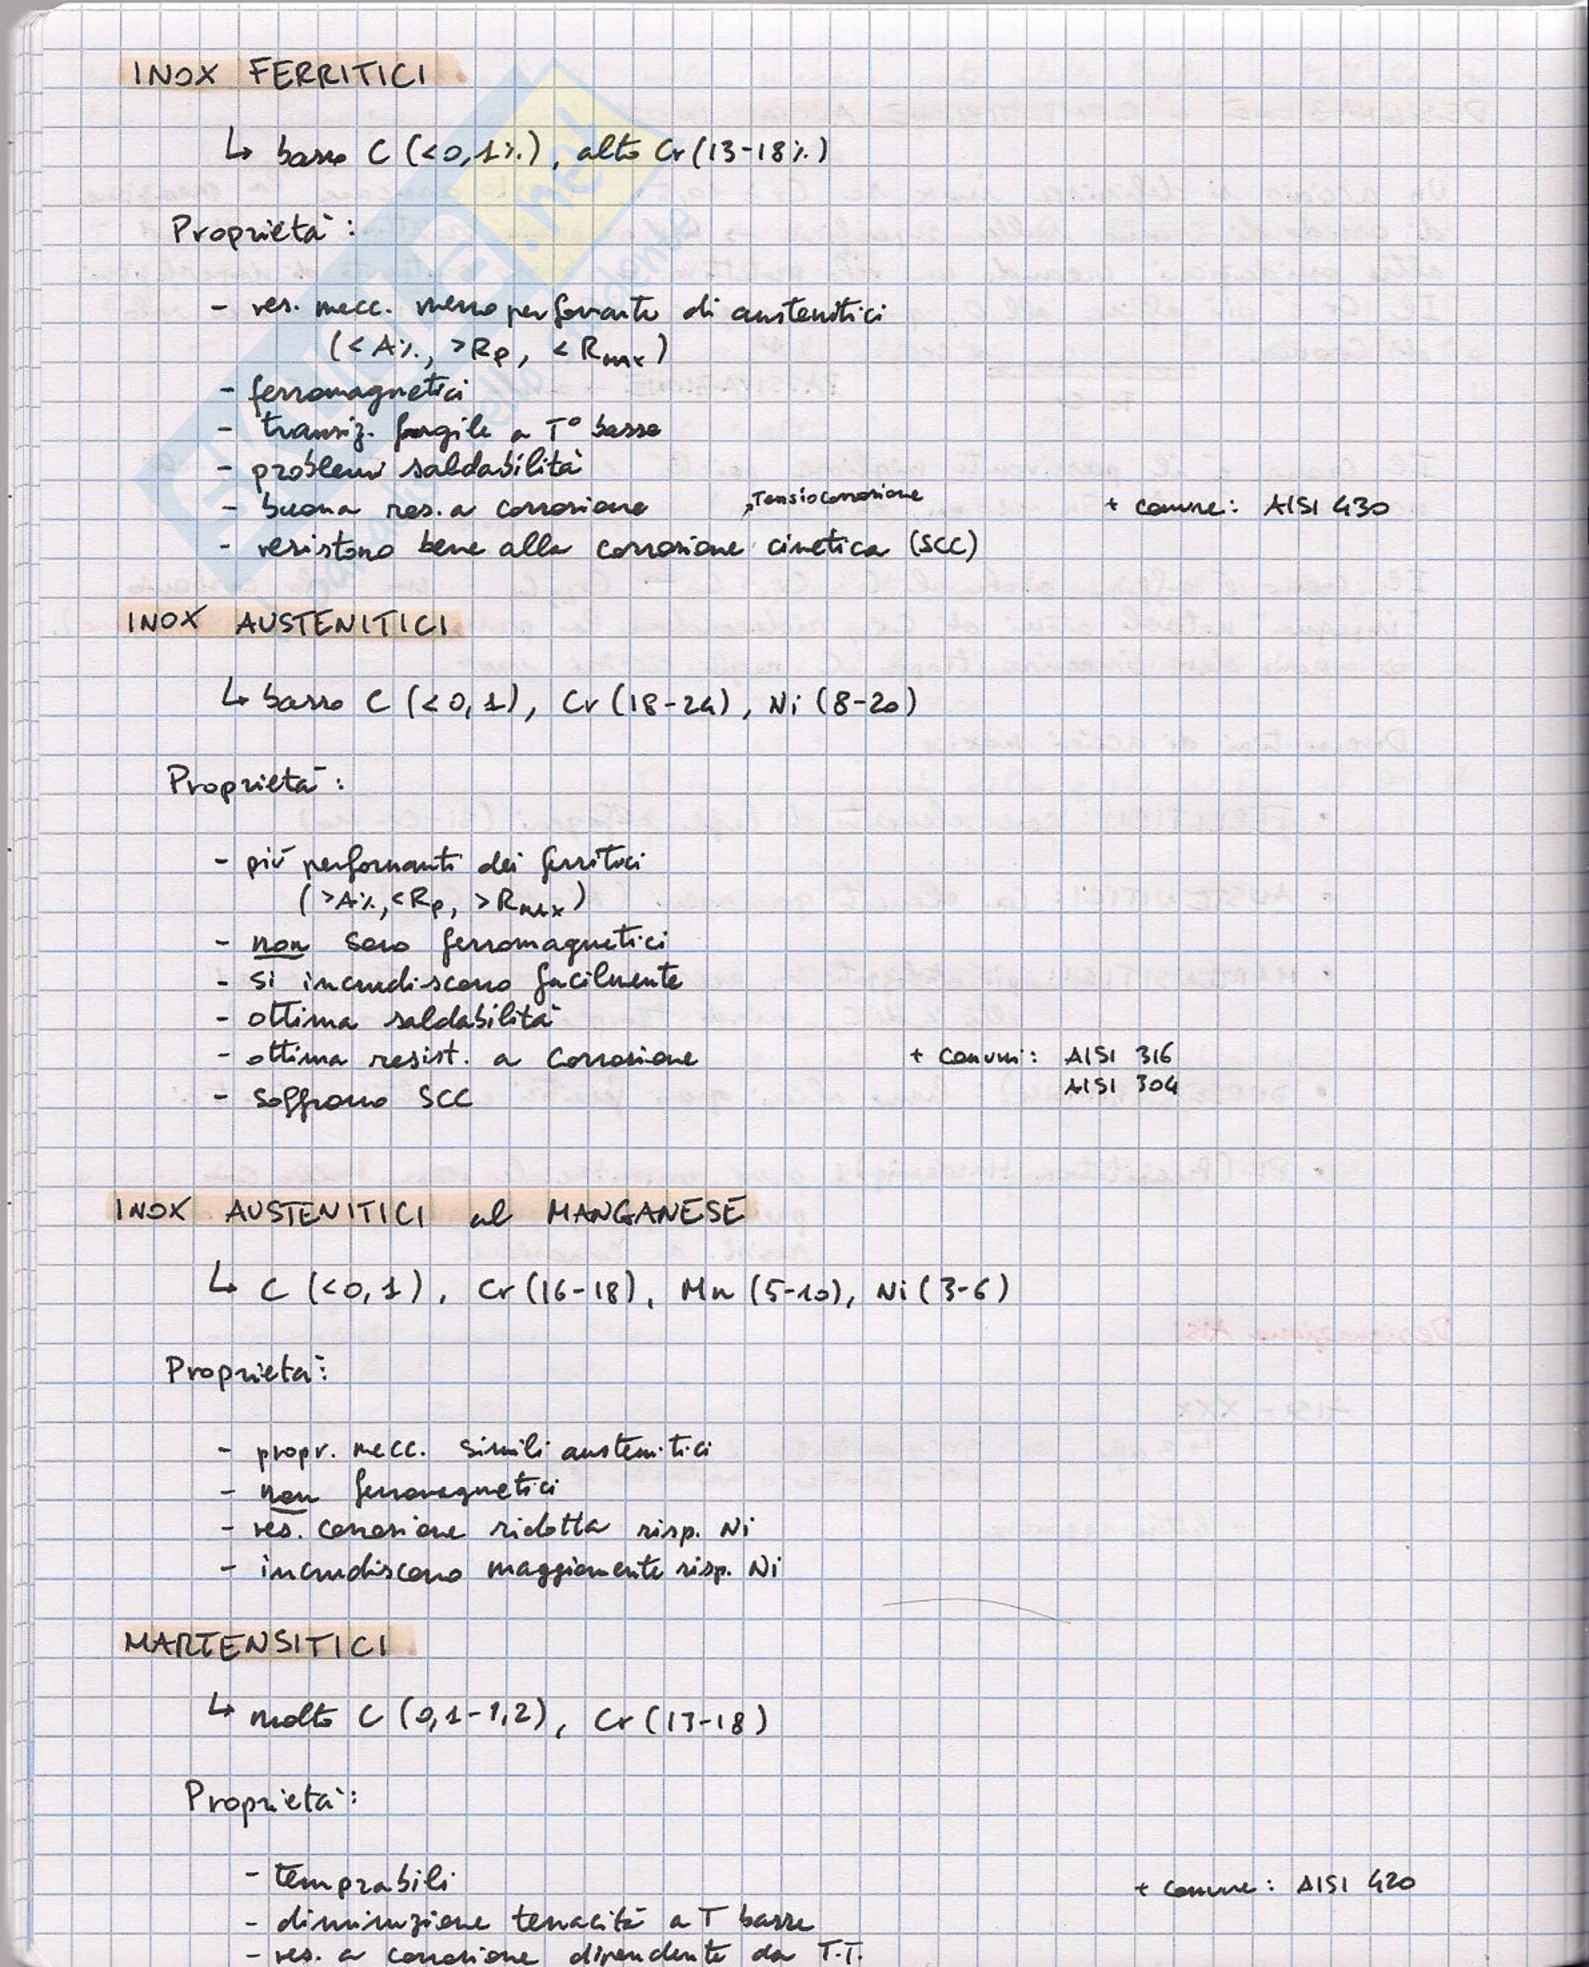 INOX FERRITICI
↳ basso C (<0,1%), alto Cr (13-18%)
Proprietà:
- res. mecc. meno performante di austenitici
(<A%, >Rp, <Rmax)
- ferromagnetici
- transiz. fragile a T° basse
- problemi saldabilità
- buona res. a corrosione
Tensiocorrosione
+ comune: AISI 430
- resistono bene alla corrosione cinetica (SCC)
INOX AUSTENITICI
↳ basso C (<0,1), Cr (18-24), Ni (8-20)
Proprietà:
- più performanti dei ferritici
(>A%, <Rp, >Rmax)
- non sono ferromagnetici
- si incrudiscono facilmente
- ottima saldabilità
- ottima resist. a corrosione
+ comuni: AISI 316
AISI 304
- soffrono SCC
INOX AUSTENITICI al MANGANESE
↳ C (<0,1), Cr (16-18), Mn (5-10), Ni (3-6)
Proprietà:
- propr. mecc. simili austenitici
- non ferromagnetici
- res. corrosione ridotta risp. Ni
- incrudiscono maggiormente risp. Ni
MARTENSITICI
↳ molto C (0,1-1,2), Cr (13-18)
Proprietà:
- temprabili
+ comune: AISI 420
- diminuzione tenacità a T basse
- res. a corrosione dipendente da T.T.